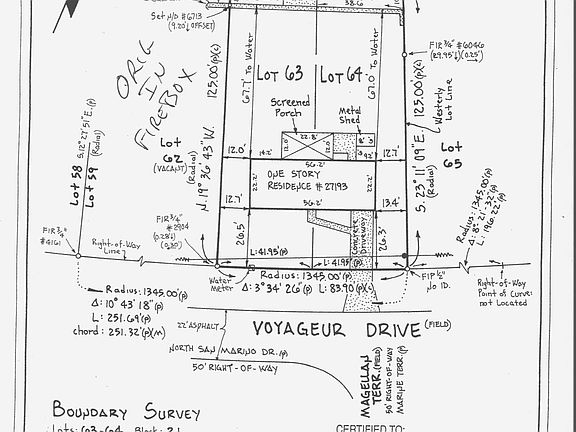 38.6
Set N/D #6713
(9.20' OFFSET)
FIR 3/4" #6046
(29.95'⊥)(0.25')
ORIG
IN
FIREBOX
125.00'(P)(C)
67.1' To Water
LOT 63
LOT 64
67.0' To Water
125.00'(P)(C)
Westerly
Lot Line
Screened
Porch
Metal
Shed
22.8'
12.0'
12.0'
8'
Lot
62
(VACANT)
Lot
65
Lot 58
Lot 59
S. 12° 27' 51" E. (P)
(Radial)
N. 19° 36' 43" W.
(Radial)
12.0'
14.2'
56.2'
12.7'
ONE STORY
RESIDENCE #27193
22.2'
22.2'
S. 23° 11' 09" E.
(Radial)
12.7'
56.2'
13.4'
Radius: 1345.00'(P)
Δ: 8° 21' 32"(P)
L: 196.22'(P)
FIR 3/4"
#4161
Right-of-Way
Line
FIR 3/4"
#2904
(0.28'⊥)
(0.30')
26.5'
Concrete
Driveway
26.3'
L: 41.95'(P)
L: 41.95'(P)
Water
Meter
Radius: 1345.00'(P)
Δ: 3° 34' 26"(P) L: 83.90'(P)(C)
FIP 1/2"
No ID.
Right-of-Way
Point of Curve:
not Located
Radius: 1345.00'(P)
Δ: 10° 43' 18"(P)
L: 251.69'(P)
chord: 251.32'(P)(M)
22' ASPHALT
VOYAGEUR DRIVE (FIELD)
NORTH SAN MARINO DR. (P)
50' RIGHT-OF-WAY
MAGELLAN
TERR. (FIELD)
50' RIGHT-OF-WAY
MARINE TERR. (P)
BOUNDARY SURVEY
CERTIFIED TO: